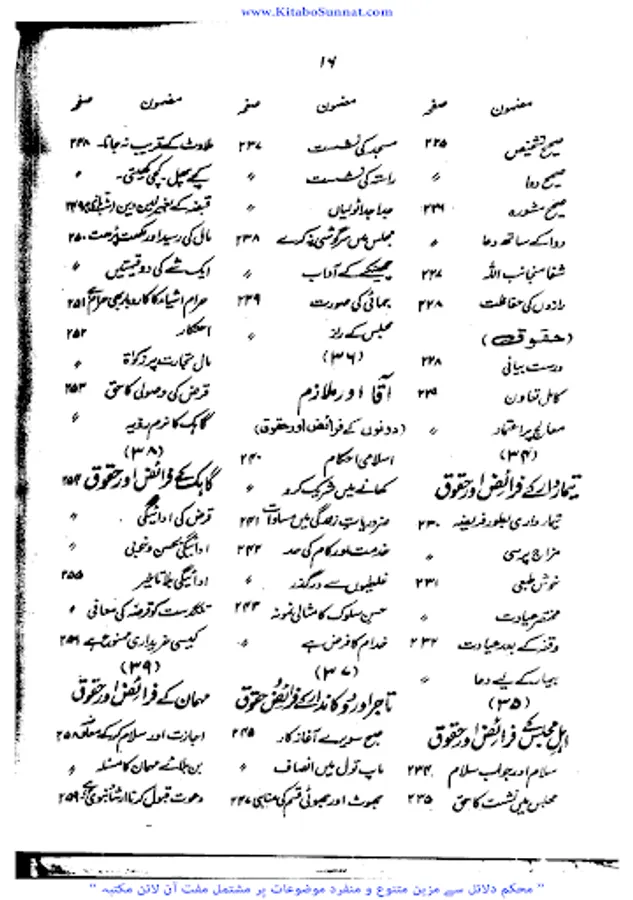 www.KitaboSunnat.com
۱۶
مضمون صفحہ
صحیح تشخیص ۲۲۵
صحیح دوا 〃
صحیح مشورہ ۲۲۶
دوا کے ساتھ دعا 〃
شفا منجانب اللہ ۲۲۷
رازوں کی حفاظت ۲۲۸
(حقوق)
درست بیانی ۲۲۸
کامل تعاون ۲۲۹
معالج پر اعتماد 〃
(۳۴)
تیماردار کے فرائض اور حقوق
تیمارداری بطور فریضہ ۲۳۰
مزاج پرسی 〃
خوش طبعی ۲۳۱
مختصر عیادت 〃
وقفہ کے بعد عیادت ۲۳۲
بیمار کے لیے دعا 〃
(۳۵)
اہل مجلس کے فرائض اور حقوق
سلام اور جواب سلام ۲۳۴
مجلس میں نشست کا حق ۲۳۵
مضمون صفحہ
مسجد کی نشست ۲۳۷
راستہ کی نشست 〃
جدا جدا ٹولیاں 〃
مجلس میں سرگوشی نہ کرے ۲۳۸
چھینکنے کے آداب 〃
جمائی کی صورت ۲۳۹
مجلس کے راز 〃
(۳۶)
آقا اور ملازم
(دونوں کے فرائض اور حقوق)
اسلامی احکام ۲۴۰
کھانے میں شریک کرو 〃
ضروریات زندگی میں مساوات ۲۴۱
خدمت اور کام کی حد ۲۴۲
غلطیوں سے درگذر 〃
حسن سلوک کا مثالی نمونہ ۲۴۳
خدام کا فرض ہے 〃
(۳۷)
تاجر اور دوکاندار کے فرائض و حقوق
صبح سویرے آغاز کار ۲۴۵
ماپ تول میں انصاف 〃
جھوٹ اور جھوٹی قسم کی مناہی ۲۴۷
مضمون صفحہ
ملاوٹ کے قریب نہ جانا۔ ۲۴۸
کچے پھل۔ کچی کھیتی۔ 〃
قبضہ کے بغیر لین دین ۲۴۹
مال کی رسید اور ۲۵۰
ایک شے کی دو قیمتیں 〃
حرام اشیاء کا کاروبار بھی حرام ہے ۲۵۱
احتکار ۲۵۲
مال تجارت پر زکوٰۃ 〃
قرض کی وصولی کا حق ۲۵۳
گاہک کا نرم رویہ 〃
(۳۸)
گاہک کے فرائض اور حقوق ۲۵۴
قرض کی ادائیگی 〃
ادائیگی بحسن و خوبی 〃
ادائیگی بلا تاخیر ۲۵۵
تنگدست کو قرضہ کی معافی 〃
کیسی خریداری ممنوع ہے ۲۵۶
(۳۹)
مہمان کے فرائض اور حقوق
اجازت اور سلام کے ۲۵۸
بن بلائے مہمان کا مسئلہ 〃
دعوت قبول کرنا ارشاد نبوی ہے ۲۵۹
" محکم دلائل سے مزین متنوع و منفرد موضوعات پر مشتمل مفت آن لائن مکتبہ "